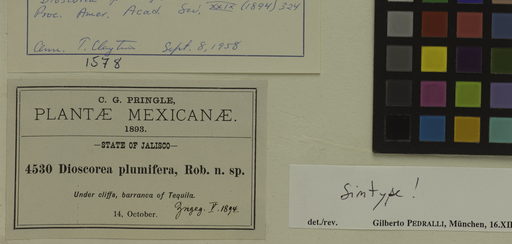 Proc. Amer. Acad. Sci, XXIX (1894) 324
Sept. 8, 1958
1578
C. G. PRINGLE,
PLANTÆ MEXICANÆ.
1893.
—STATE OF JALISCO—
4530 Dioscorea plumifera, Rob. n. sp.
Under cliffs, barranca of Tequila.
14, October.
V. 1894.
Sintype!
det./rev. Gilberto PEDRALLI, München, 16.XII